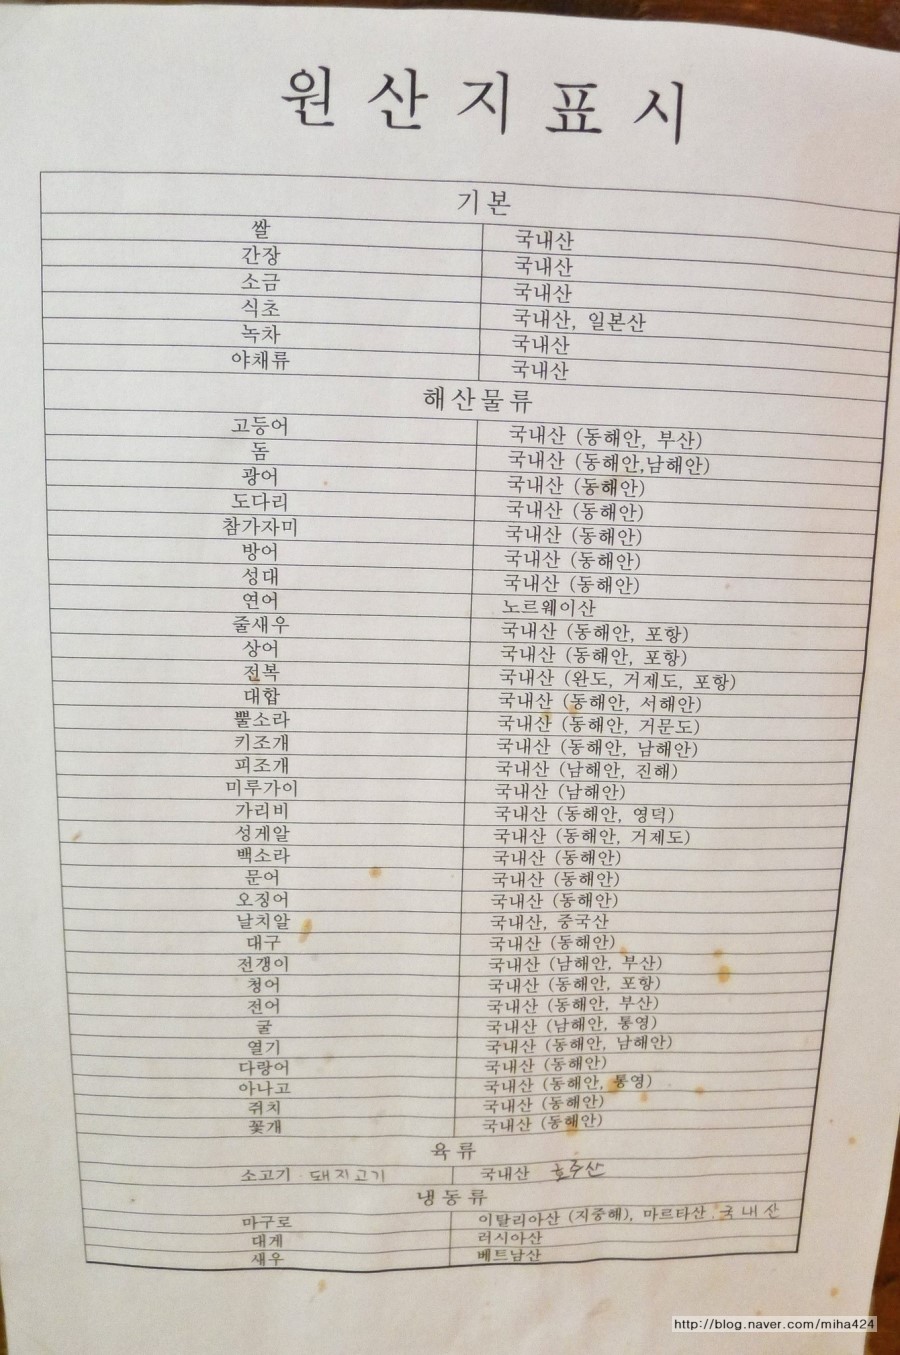 원산지표시
기본
쌀 국내산
간장 국내산
소금 국내산
식초 국내산, 일본산
녹차 국내산
야채류 국내산
해산물류
고등어 국내산 (동해안, 부산)
돔 국내산 (동해안,남해안)
광어 국내산 (동해안)
도다리 국내산 (동해안)
참가자미 국내산 (동해안)
방어 국내산 (동해안)
성대 국내산 (동해안)
연어 노르웨이산
줄새우 국내산 (동해안, 포항)
상어 국내산 (동해안, 포항)
전복 국내산 (완도, 거제도, 포항)
대합 국내산 (동해안, 서해안)
뿔소라 국내산 (동해안, 거문도)
키조개 국내산 (동해안, 남해안)
피조개 국내산 (남해안, 진해)
미루가이 국내산 (남해안)
가리비 국내산 (동해안, 영덕)
성게알 국내산 (동해안, 거제도)
백소라 국내산 (동해안)
문어 국내산 (동해안)
오징어 국내산 (동해안)
날치알 국내산, 중국산
대구 국내산 (동해안)
전갱이 국내산 (남해안, 부산)
청어 국내산 (동해안, 포항)
전어 국내산 (동해안, 부산)
굴 국내산 (남해안, 통영)
열기 국내산 (동해안, 남해안)
다랑어 국내산 (동해안)
아나고 국내산 (동해안, 통영)
쥐치 국내산 (동해안)
꽃개 국내산 (동해안)
육류
소고기 · 돼지고기 국내산 호주산
냉동류
마구로 이탈리아산 (지중해), 마르타산. 국내산
대게 러시아산
새우 베트남산
http://blog.naver.com/miha424